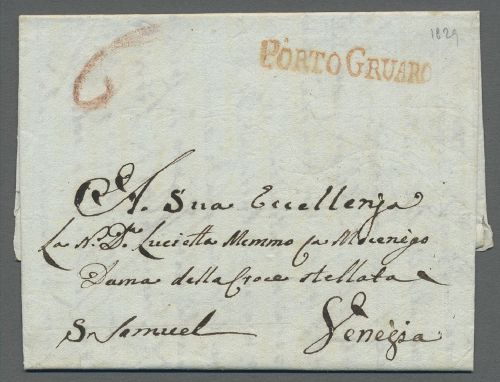 1829
6
PORTO GRUARO
A. Sua Eccellenza
La N. D. Lucietta Memmo Mocenigo
Dama della Croce stellata
S. Samuel
Venezia